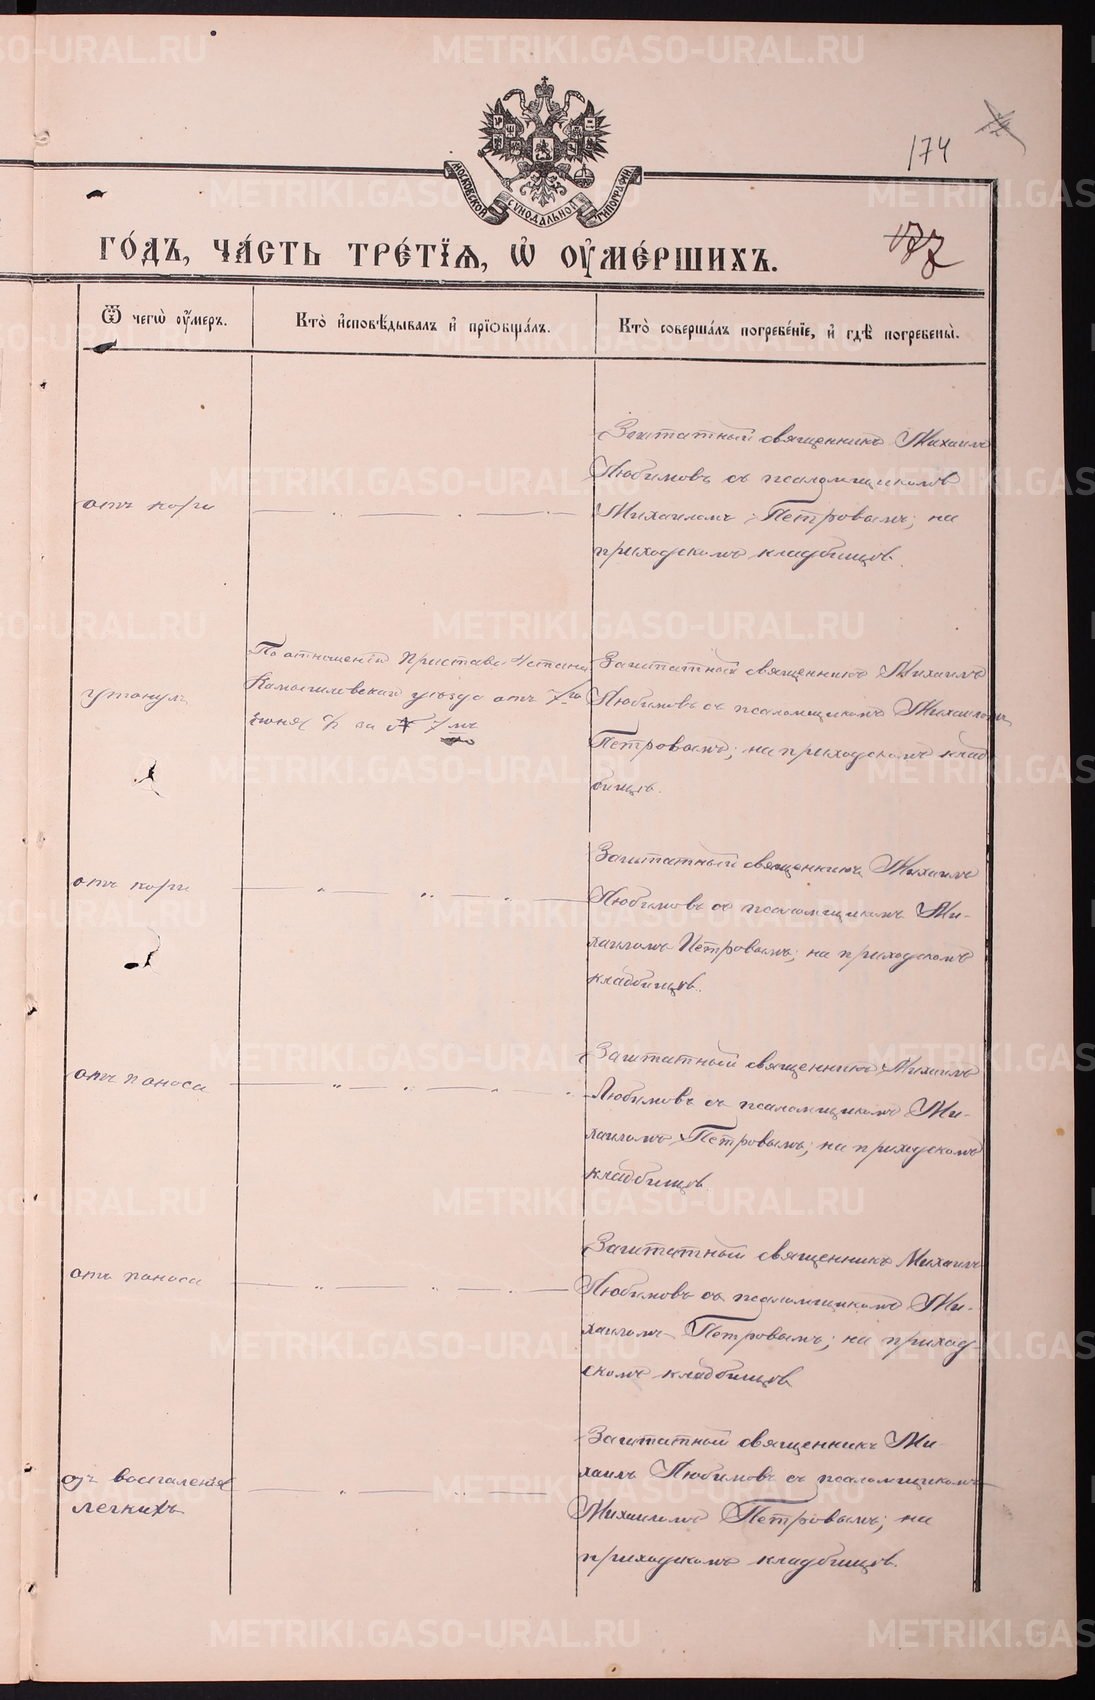 174
МОСКОВСКОЙ СѴНОДАЛЬНОЙ ТИПОГРАФІИ
ГО́ДЪ, ЧА́СТЬ ТРЕ́ТЇѦ, Ѡ҆ ОУ҆МЕ́РШИХЪ.
177
Ѿ чегѡ̀ оу҆́меръ.
Кто̀ и҆сповѣ́дывалъ и҆ прїѻбща́лъ.
Кто̀ соверша́лъ погребе́нїе, и҆ гдѣ̀ погребены̀.
отъ кори
Заштатный священникъ Михаилъ
Любимовъ съ псаломщикомъ
Михаиломъ Петровымъ; на
приходскомъ кладбищѣ.
утонулъ
По отношенію Пристава 4 стана
Камышловскаго уѣзда отъ 7го
іюня за № 7мъ
Заштатный священникъ Михаилъ
Любимовъ съ псаломщикомъ Михаиломъ
Петровымъ; на приходскомъ клад
бищѣ.
отъ кори
Заштатный священникъ Михаилъ
Любимовъ съ псаломщикомъ Ми-
хаиломъ Петровымъ; на приходскомъ
кладбищѣ.
отъ поноса
Заштатный священникъ Михаилъ
Любимовъ съ псаломщикомъ Ми-
хаиломъ Петровымъ; на приходскомъ
кладбищѣ
отъ поноса
Заштатный священникъ Михаилъ
Любимовъ съ псаломщикомъ Ми-
хаиломъ Петровымъ; на приход-
скомъ кладбищѣ
отъ воспаленія
легкихъ
Заштатный священникъ Ми-
хаилъ Любимовъ съ псаломщикомъ
Михаиломъ Петровымъ; на
приходскомъ кладбищѣ.
METRIKI.GASO-URAL.RU